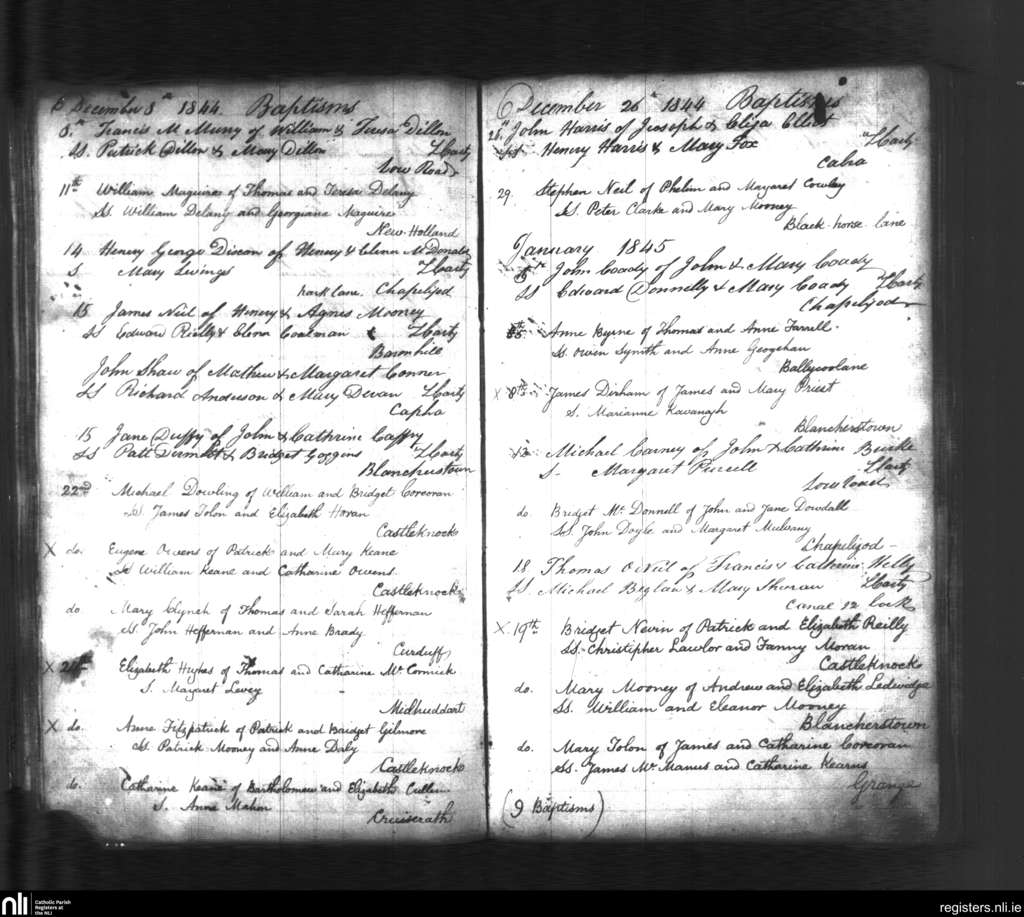 December 8th 1844 Baptisms
8th Francis M Murry of William & Teresa Dillon
SS. Patrick Dillon & Mary Dillon Harty
Low Road
11th William Maguire of Thomas and Teresa Delany
SS. William Delany and Georgiana Maguire
New Holland
14 Henery George Dixcon of Henery & Elenn McDonald
S. Mary Livings Harty
park lane. Chapelizod
15 James Neil of Henery & Agnes Mooney
SS Edward Reilly & Elenn Harty
John Shaw of Mathew & Margaret Conner
SS Richard Anderson & Mary Devan Harty
Capha
15 Jane Duffy of John & Cathrine Caffry
SS Patt Dermott & Bridget Goggins Harty
Blancherstown
22nd Michael Dowling of William and Bridget Corcoran
SS. James Tolon and Elizabeth Horan
Castleknock
X do. Eugene Owens of Patrick and Mary Keane
SS William Keane and Catharine Owens.
Castleknock
do Mary Clynch of Thomas and Sarah Heffernan
SS. John Heffernan and Anne Brady
Curduff
X Elizabeth Hughes of Thomas and Catharine Mc Cormick
S. Margaret Levey
Mulhuddart
X do. Anne Fitzpatrick of Patrick and Bridget Gilmore
SS. Patrick Mooney and Anne Daly
Castleknock
do. Catharine Keane of Bartholomew and Elizabeth Cullen
S. Anne Mahon
Cruiserath
December 26th 1844 Baptisms
John Harris of Joseph & Eliza Elliot
SS Henery Harris & Mary Fox Harty
Cabra
29. Stephen Neil of Phelim and Margaret Cowley
SS. Peter Clarke and Mary Mooney
Black-horse lane
January 1845
5th John Coady of John & Mary Coady
SS Edward Donnelly & Mary Coady Harty
Chapelizod
Anne Byrne of Thomas and Anne Farrell
SS. Owen Smith and Anne Geoghan
Ballycoolane
X 8th James Dirham of James and Mary Priest
S. Marianne Kavanagh
Blancherstown
12 Michael Carney of John & Cathrine Burke
S- Margaret Purcell Harty
Low road
do Bridget Mc Donnell of John and Jane Dowdall
SS. John Doyle and Margaret Mulvany
Chapelizod-
18 Thomas O Neil of Francis & Cathrine Helly
SS. Michael Beglan & Mary Sheran Harty
Canal 12 lock
X 19th Bridget Nevin of Patrick and Elizabeth Reilly
SS-Christopher Lawlor and Fanny Moran
Castleknock
do. Mary Mooney of Andrew and Elizabeth Ledwedge
SS. William and Eleanor Mooney
Blancherstown
do. Mary Tolon of James and Catharine Corcoran
SS. James Mc Manus and Catharine Kearns
Grange
(9 Baptisms)
nli
Catholic Parish
Registers at
the NLI
registers.nli.ie